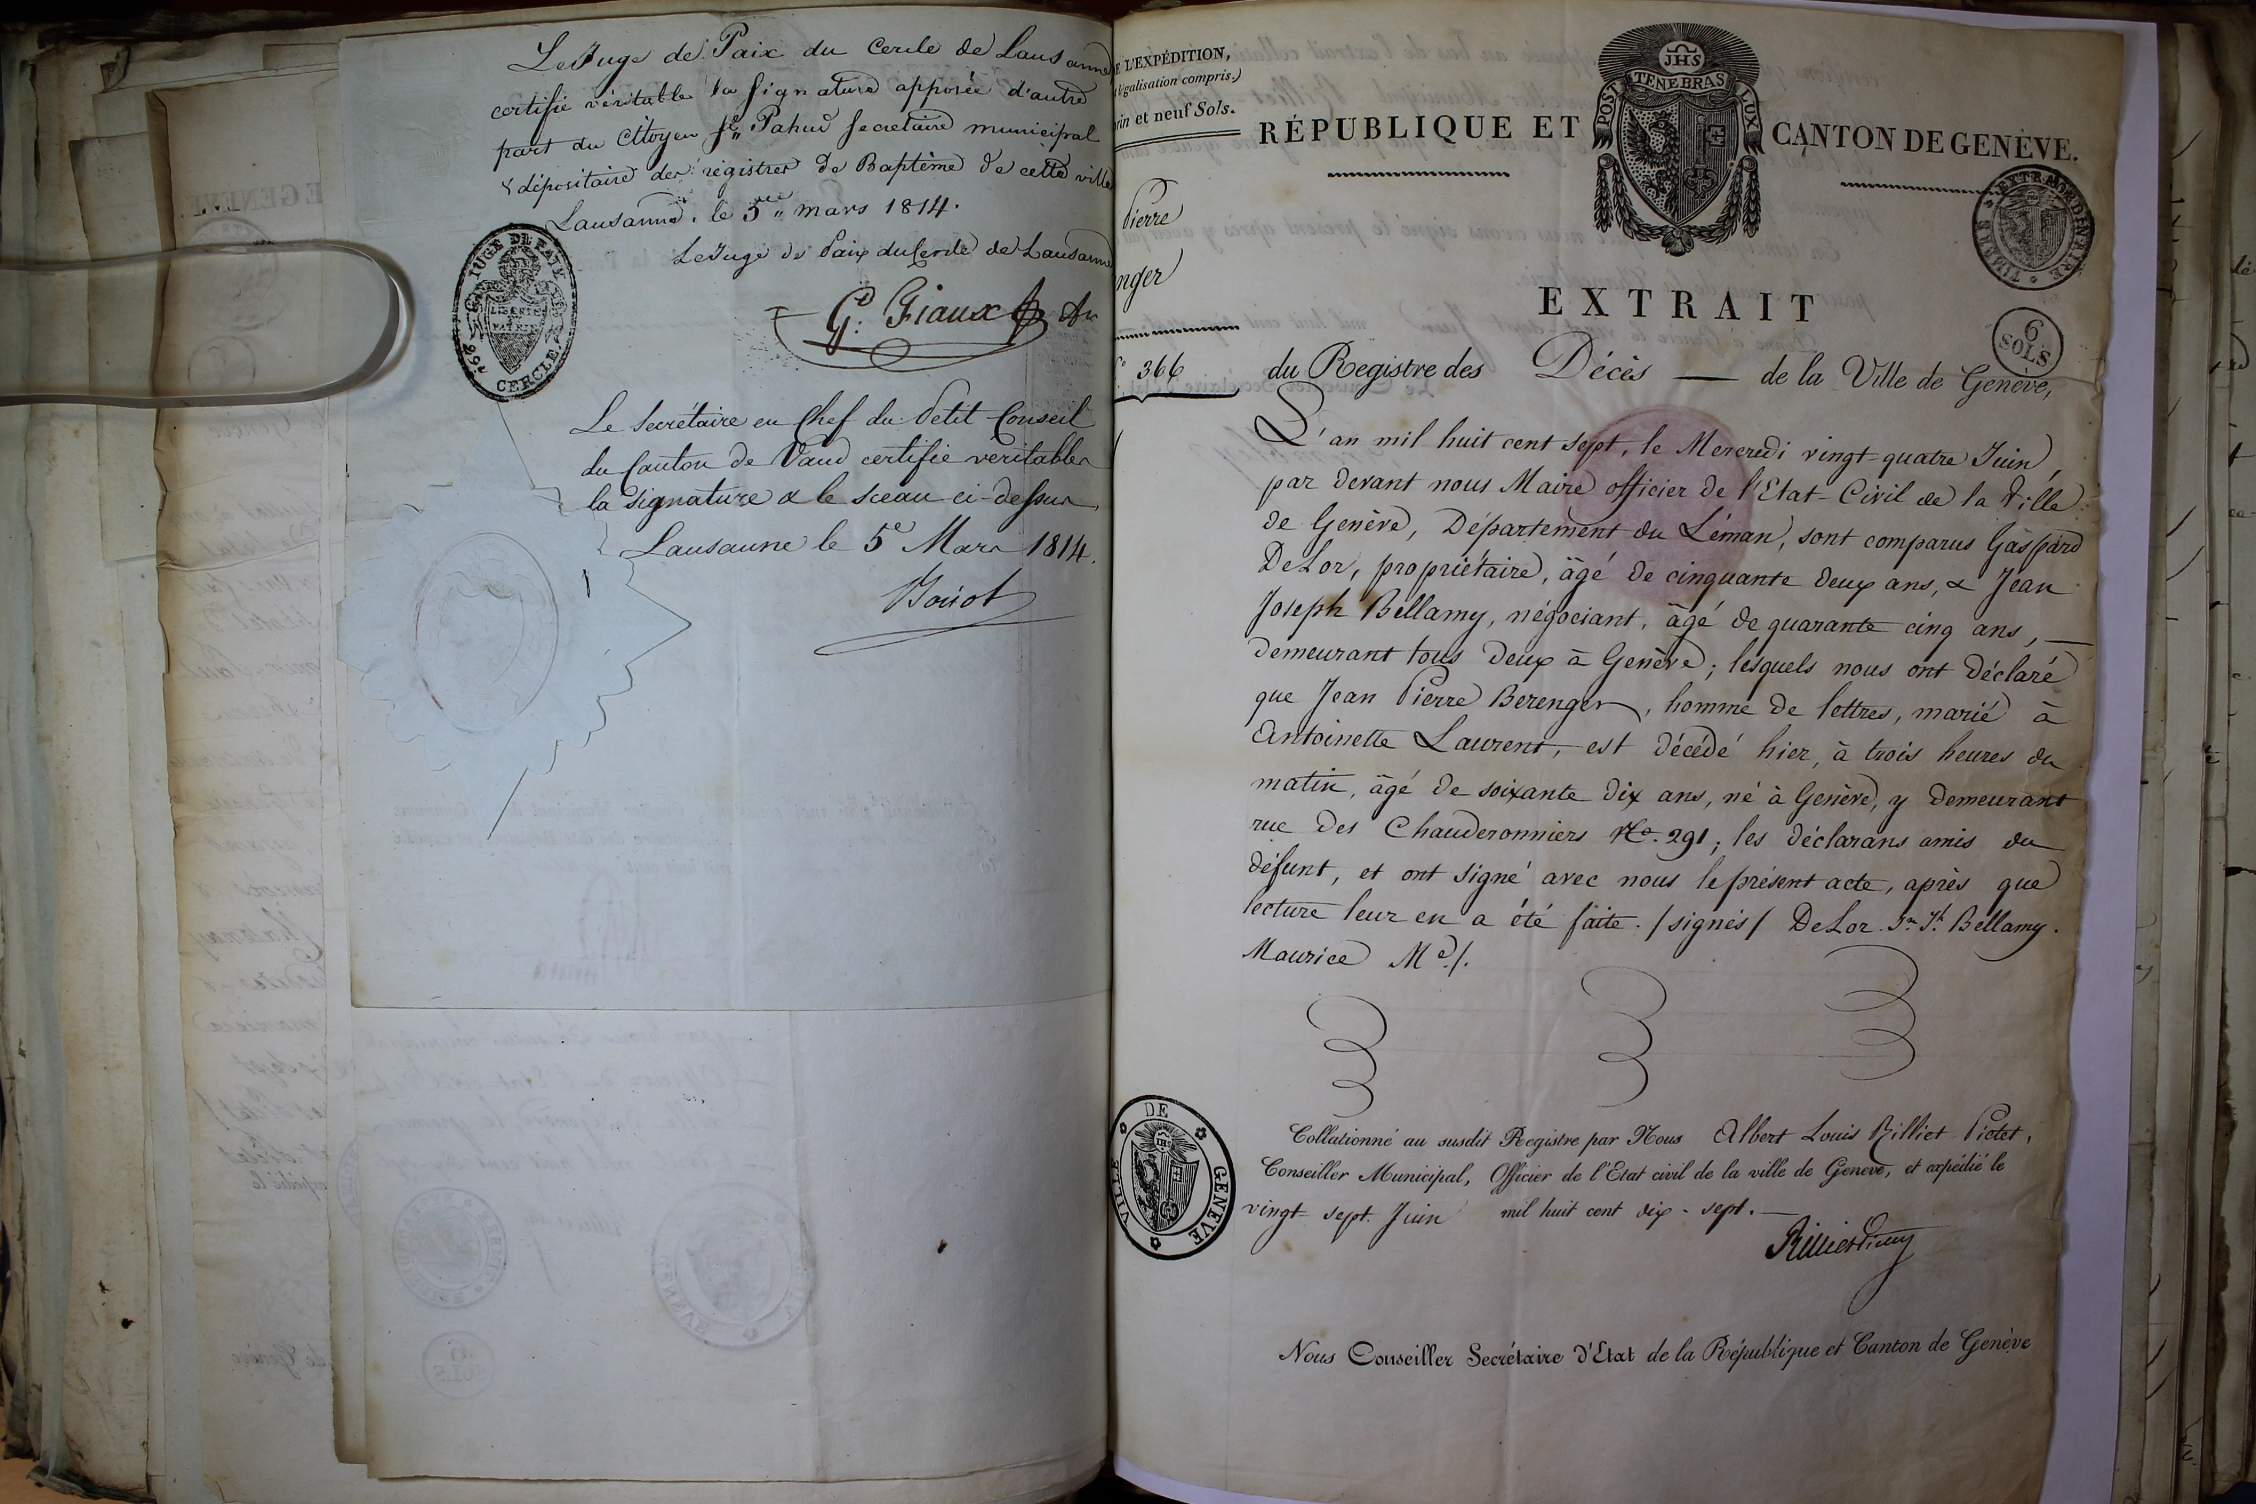 Le Juge de Paix du Cercle de Lausanne
certifie véritable la signature apposée d'autre
part du Citoyen Pahud secretaire municipal
& dépositaire des régistres de Baptême de cette ville
Lausanne, le 5 mars 1814.
Le Juge de Paix du Cercle de Lausanne
G. Fiaux
JUGE DE PAIX
LIBERTÉ
PATRIE
CERCLE.
Le Secrétaire en Chef du Petit Conseil
du Canton de Vaud certifie véritables
la signature & le sceau ci-dessus,
Lausanne le 5e Mars 1814.
Boisot
E L'EXPÉDITION,
égalisation compris.)
rin et neuf Sols.
Pierre
nger
366
RÉPUBLIQUE ET CANTON DE GENÈVE.
JHS
POST TENEBRAS LUX
TIMBRE EXTRAORDINAIRE
6
SOLS
EXTRAIT
du Registre des Décès — de la Ville de Genève,
L'an mil huit cent sept, le Mercredi vingt-quatre Juin,
par devant nous Maire officier de l'Etat-Civil de la Ville
de Genève, Département du Léman, sont comparus Gaspard
DeLor, propriétaire, âgé de cinquante deux ans, & Jean
Joseph Bellamy, négociant, âgé de quarante cinq ans, —
demeurant tous deux à Genève; lesquels nous ont déclaré
que Jean Pierre Berenger, homme de lettres, marié à
Antoinette Laurent, est décédé hier, à trois heures du
matin, âgé de soixante dix ans, né à Genève, y demeurant
rue des Chauderonniers No. 291; les déclarans amis du
défunt, et ont signé avec nous le présent acte, après que
lecture leur en a été faite. /signés/ DeLor. Jn. Jh. Bellamy.
Maurice Me/.
VILLE DE GENEVE
JHS
Collationné au susdit Registre par Nous Albert Louis Rilliet Pictet,
Conseiller Municipal, Officier de l'Etat civil de la ville de Geneve, et expédié le
vingt sept Juin mil huit cent dix-sept. —
Rilliet Pictet
Nous Conseiller Secrétaire d'Etat de la République et Canton de Genève